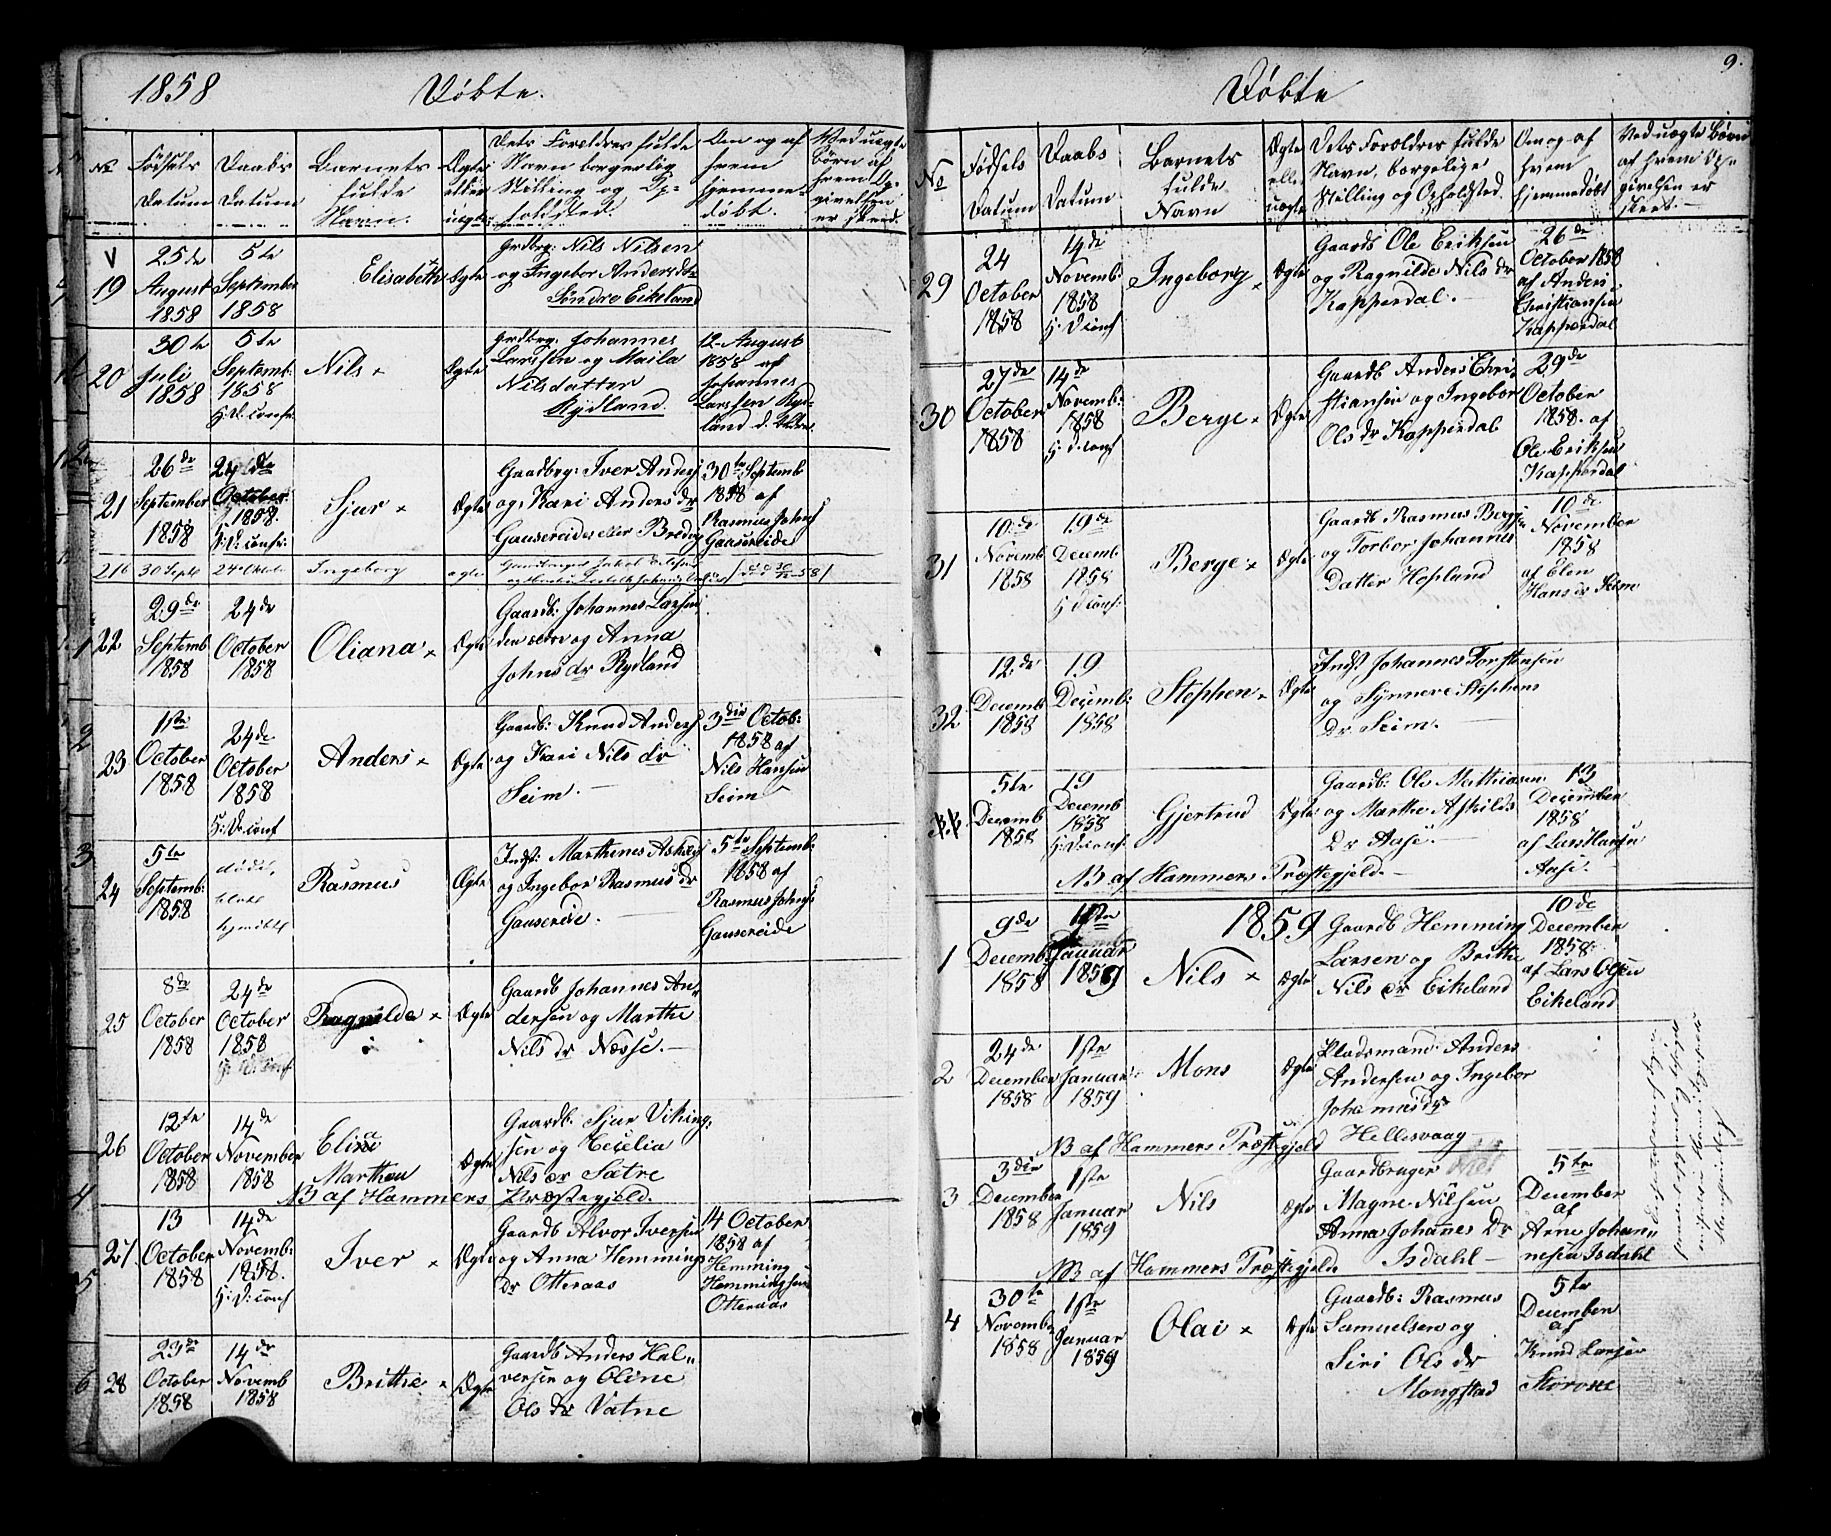 1858 Døbte.
No
Fødsels Datum
Daabs Datum
Barnets fulde Navn.
Ægte eller uægte
Dets Forældres fulde Navn borgerlig Stilling og Op=holdsted.
Om og af hvem hjemme=døbt.
Ved uægte Børn af hvem Op=givelsen er skeed.
19
25de August 1858
5te Septembr 1858
Elisabeth
Ægte
Grdbrg: Nils Nilsen
og Ingebor Andersdr
Søndre Eikeland
20
30te Juli 1858
5te Septemb: 1858
H: D: conf:
Nils
Ægte
Grdbrg: Johannes
Larssen og Maila
Nilsdatter
Rydland
12 August
1858 af
Johannes
Larssen Ryd=
land
21
26de September 1858
24de October 1858.
H: D: conf:
Sjur
Ægte
Gaardbrg: Iver Anders
og Kari Anders dr
Gausereide eller Bredvig
30te Septemb
1858 af
Rasmus Johns
Gausereide
21b 30 Septb 24de Oktbr Ingeborg ægte
22
29de Septemb 1858
24de October 1858
Oliana
Ægte
Gaardb: Johannes Larsen
og Anna
Johns dr Rydland
23
1ste October 1858
24de October 1858
H: D: conf
Anders
Ægte
Gaardb: Knud Anders
og Kari Nils dr
Seim.
3die Octob:
1858 af
Nils Hansen
Seim
24
5te Septemb: 1858
Rasmus
Ægte
Indst: Marthenes Askels
og Ingebor Rasmus dr
Gausereide.
5te Septemb:
1858 af
Rasmus Johns
Gausereide
25
8de October 1858
24de October 1858
H: D: conf
Ragnilde
Ægte
Gaardb Johannes An=
dersen og Marthe
Nils dr Næsse.
26
12te October 1858
14de November 1858
Marthea
Ægte
Gaardb: Sjur Viking=
sen og Cecilia
Nils dr Sætre
NB af Hammers Præstegjeld.
27
13 October 1858
14de Novemb: 1858.
H: D: conf
Iver
Ægte
Gaardb Alvor Iversen
og Anna Hemmings
Dr Otteraas
14 October
1858 af
Hemming
Hemmingsen
Otteraas
28
23de October 1858
14de Novemb 1858
Brithe
Ægte
Gaardb Anders Hal=
versen og Oline
Ols dr Vatne
Døbte 9.
No
Fødsels Datum
Daabs Datum
Barnets fulde Navn
Ægte eller uægte
Dets Forældres fulde Navn, borgelige Stilling og Opholdsted.
Om og af hvem hjemmedøbt
Ved uægte Børn af hvem Op=givelsen er skeet.
29
24 October 1858
14de Novemb: 1858
H: D conf
Ingeborg
Ægte
Gaardb Ole Eriksen
og Ragnilde Nils dr
Kopperdal.
26de
October 1858
af Anders
Christiansen
Kopperdal
30
27de October 1858
14de Novemb: 1858
H: D: conf
Berge
Ægte
Gaardb Anders Chri
stiansen og Ingebor
Ols dr Kopperdal
29de
October
1858. af
Ole Eriksen
Kopperdal
31
10de Novemb 1858
19de Decemb 1858
H: D conf:
Berge
Ægte
Gaardb Rasmus Berge
og Torbor Johannes
Datter Hopland
10de
November
1858
af Elen
Hans dr Seim
32
12de Decemb 1858
19 Decemb: 1858
Stephen
Ægte
Indst Johannes Torstensen
og Synneve Stephens
Dr Seim.
5te Decemb 1858
19 Decemb 1858
H: D: conf:
Gjertrud
Ægte
Gaardb: Ols Mathiasen
og Marthe Askilds
Dr Aase.
13
December
1858
af Lars Hansen
Aase.
NB af Hammers Præstegjeld.
1859
1
9de Decemb: 1858
1ste Januar 1859
Nils
Ægte
Gaardb Hemming
Larsen og Brithe
Nils dr Eikeland
10de
December
1858.
af Lars Olsen
Eikeland
2
24de December 1858
1ste Januar 1859
Mons
Ægte
Pladsmand: Anders
Andersen og Ingebor
Johannesdr
Hellesvaag
NB af Hammers Præstegjeld
3
3die December 1858
1ste Januar 1859
Nils
Ægte
Gaardbruger
Magne Nilsen
Anna Johanes Dr
Isdahl
5te
December
af
Arne Johan=
nesen Isdahl
NB af Hammers Præstegjeld
4
30te Novembr 1858
1ste Januar 1859
Olai
Ægte
Gaardb: Rasmus
Samuelsen og
Siri Ols dr
Mongstad
5te
December
af
Knud Larsen